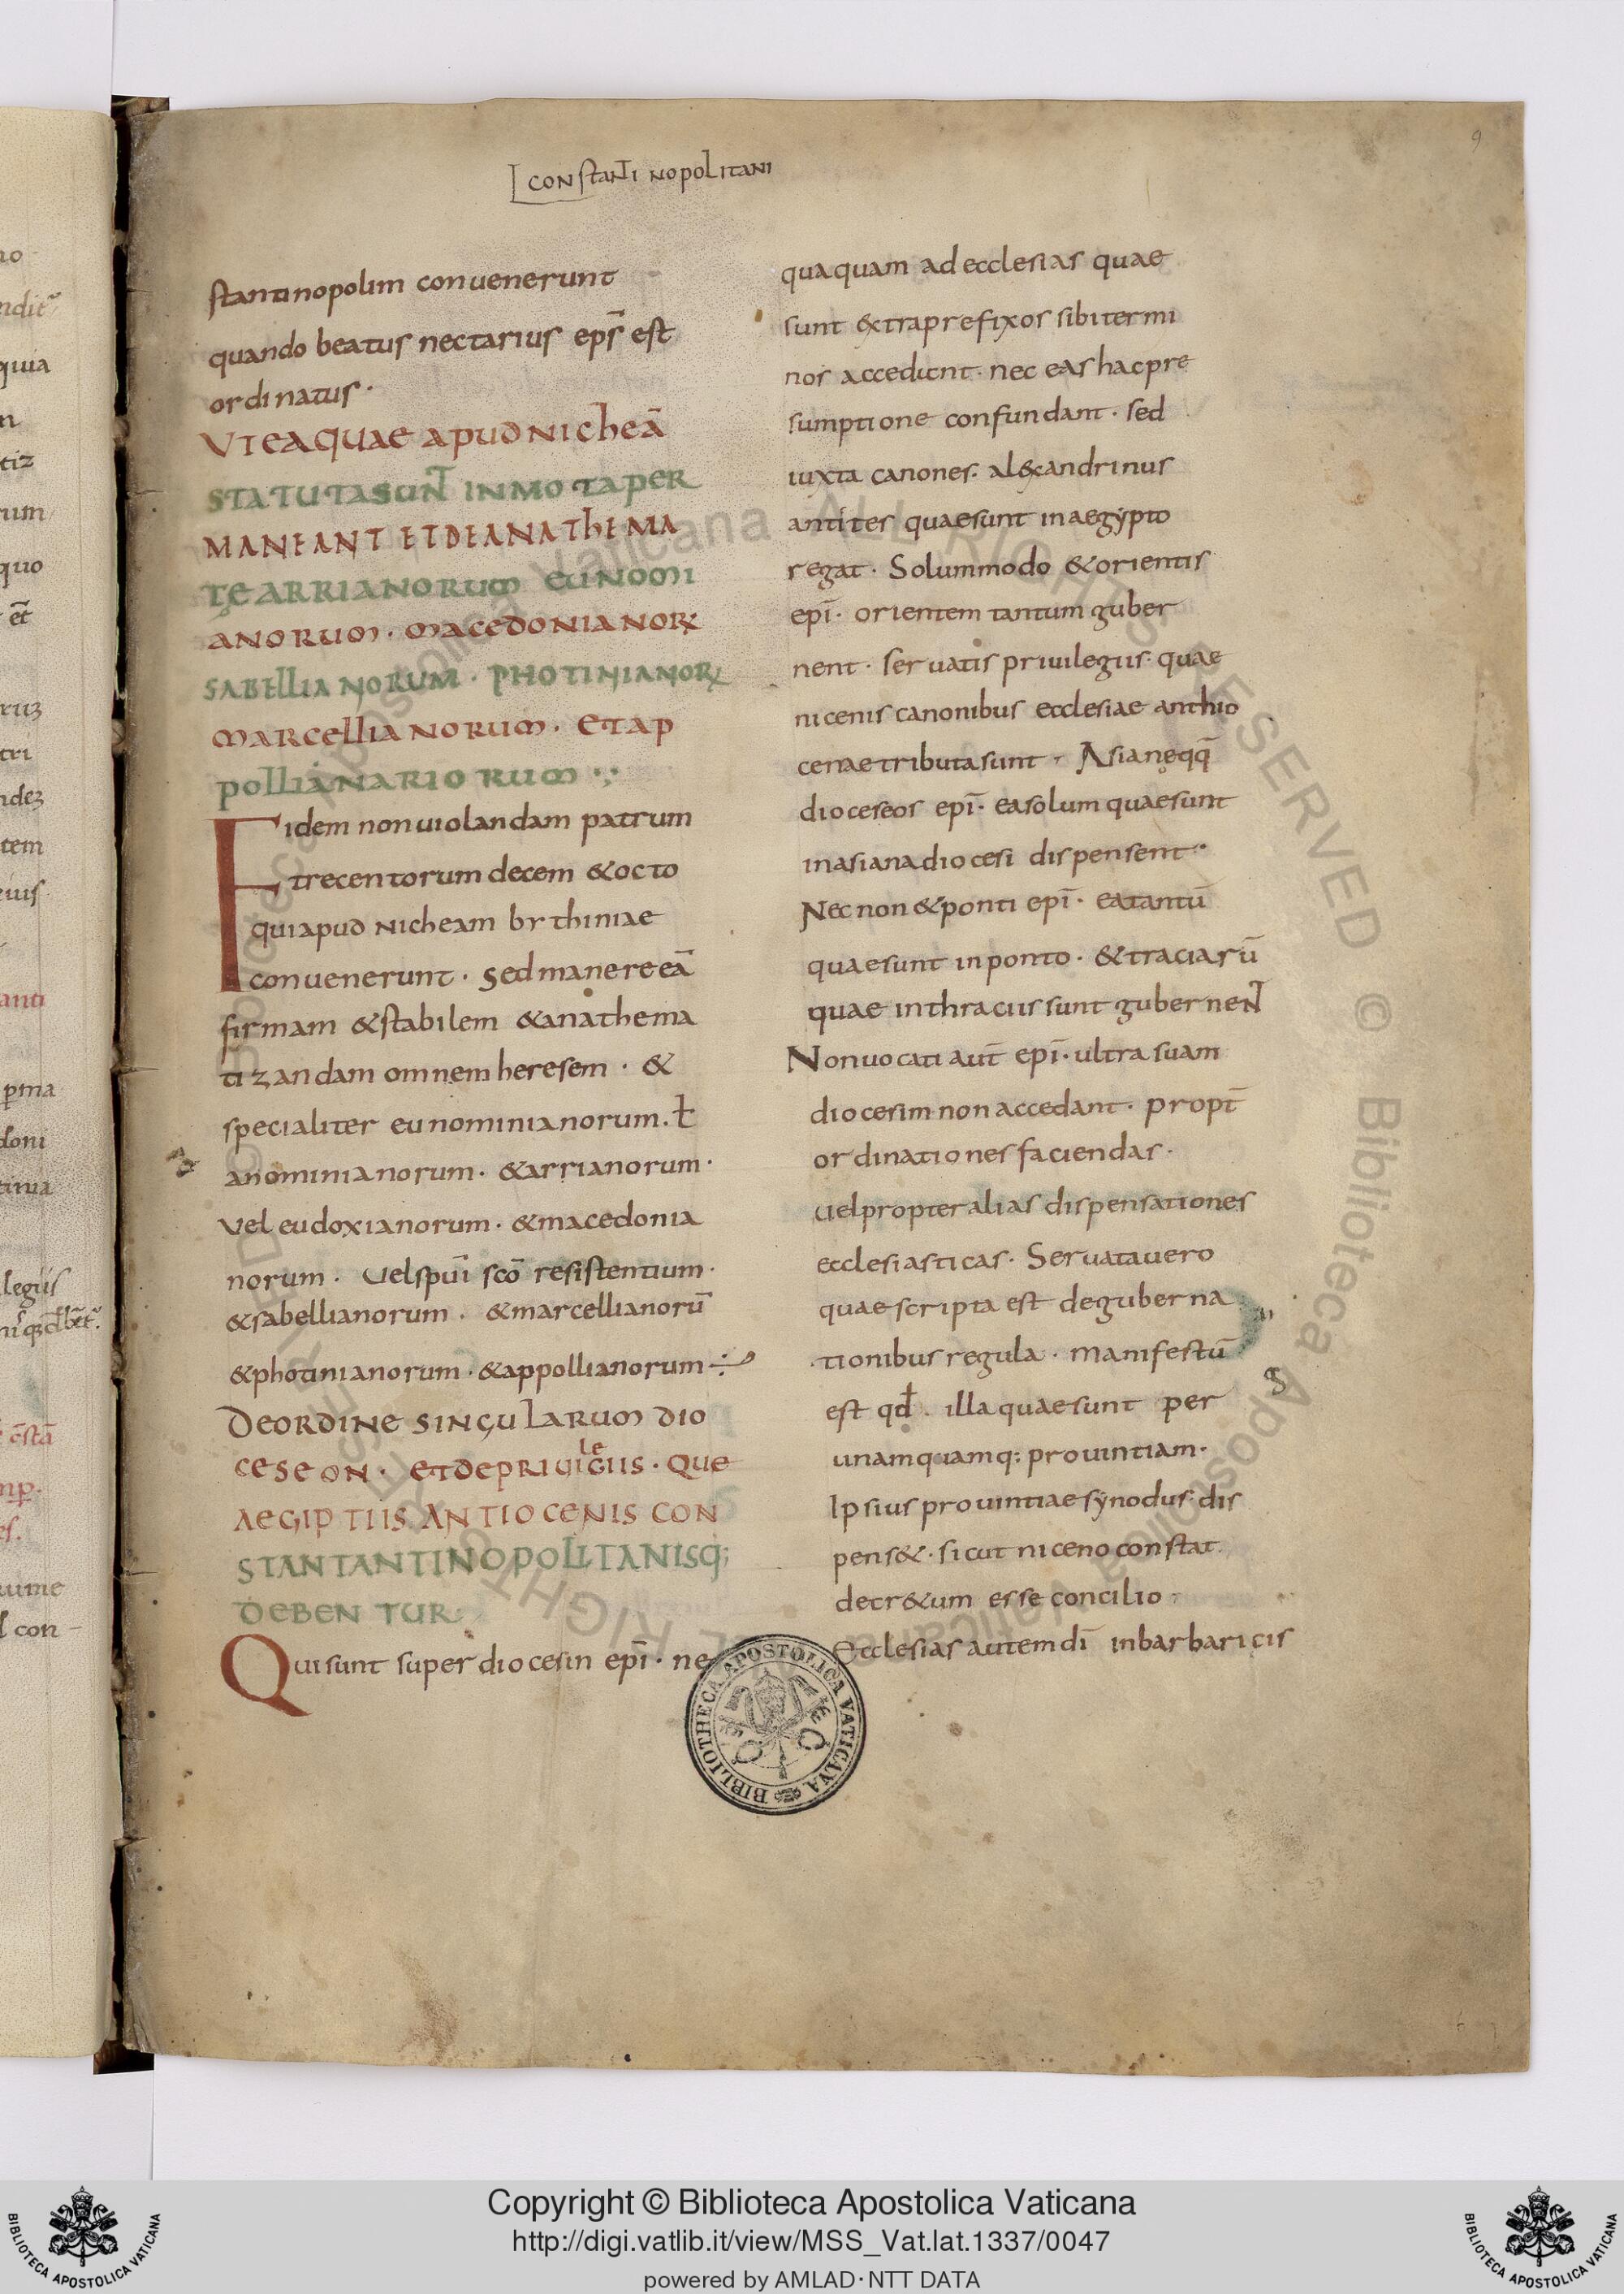 9
constanti nopolitani
stantinopolim convenerunt
quando beatus nectarius ep̄s est
ordinatus ·
UTEAQUAE APUDNICHEĀ
STATUTASUNT INMOTAPER
MANEANT ETDEANATHEMA
TEARRIANORUM EUNOMI
ANORUM · MACEDONIANOR
SABELLIANORUM · PHOTINIANOR
MARCELLIANORUM · ETAP
POLLIANARIORUM
Fidem nonuiolandam patrum
trecentorum decem &octo
quiapud nicheam bythiniae
convenerunt · sed manere eā
firmam &stabilem &anathema
tizandam omnem heresem · &
specialiter eunominianorum . ł
anominianorum · &arrianorum ·
vel eudoxianorum · &macedonia
norum · vel sp̄ui sc̄o resistentium ·
&sabellianorum · &marcellianorū
&photinianorum · &appollianorum ÷
DEORDINE SINGULARUM DIO
CESEON · ETDEPRIVILEGIIS · QUE
AEGIPTIIS ANTIOCENIS CON
STANTANTINOPOLITANISQ;
DEBENTUR
Quisunt super diocesin ep̄i · ne
quaquam ad ecclesias quae
sunt &traprefixos sibi termi
nos accedunt · nec eas hac pre
sumptione confundant · sed
iuxta canones · al&andrinus
antites quaesunt inaegypto
regat · Solummodo &orientis
ep̄i · orientem tantum guber
nent · servatis privilegiis · quae
nicenis canonibus ecclesiae anthio
cenae tributasunt · Asianęqq̄
dioceseos ep̄i · easolum quaesunt
inasianadiocesi dispensent ·
Nec non &ponti ep̄i · eatantū
quaesunt inponto · &traciarū
quae inthraciis sunt gubernent
Nonvocati aut̄ ep̄i · ultra suam
diocesim non accedant · propt̄
ordinationes faciendas ·
velpropter alias dispensationes
ecclesiasticas · Servatavero
quae scripta est deguberna
tionibus regula · manifestū
est qđ · illa quaesunt per
unamquamq; provintiam ·
Ipsius provintiae synodus dis
pens& · sicut niceno constat
decr&um esse concilio ·
Ecclesias autem dī inbarbaricis
BIBLIOTHECA APOSTOLICA VATICANA
Copyright © Biblioteca Apostolica Vaticana
http://digi.vatlib.it/view/MSS_Vat.lat.1337/0047
powered by AMLAD·NTT DATA
BIBLIOTECA APOSTOLICA VATICANA
BIBLIOTECA APOSTOLICA VATICANA